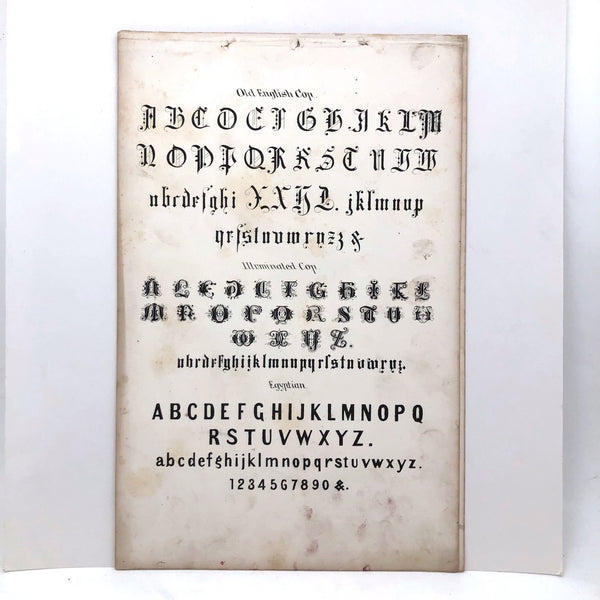 Old English Cap
A B C D E F G H I K L M
N O P P Q R K S T U V W
abcdefghi XXYZ. jklmnop
qrsstuvwxyzz &
Illuminated Cap
A B C D E F G H I K L
M N O P Q R S T U H
W X Y Z.
abcdefghijklmnopqrsstuvwxyz.
Egyptian
A B C D E F G H I J K L M N O P Q
R S T U V W X Y Z.
a b c d e f g h i j k l m n o p q r s t u v w x y z.
1 2 3 4 5 6 7 8 9 0 &.